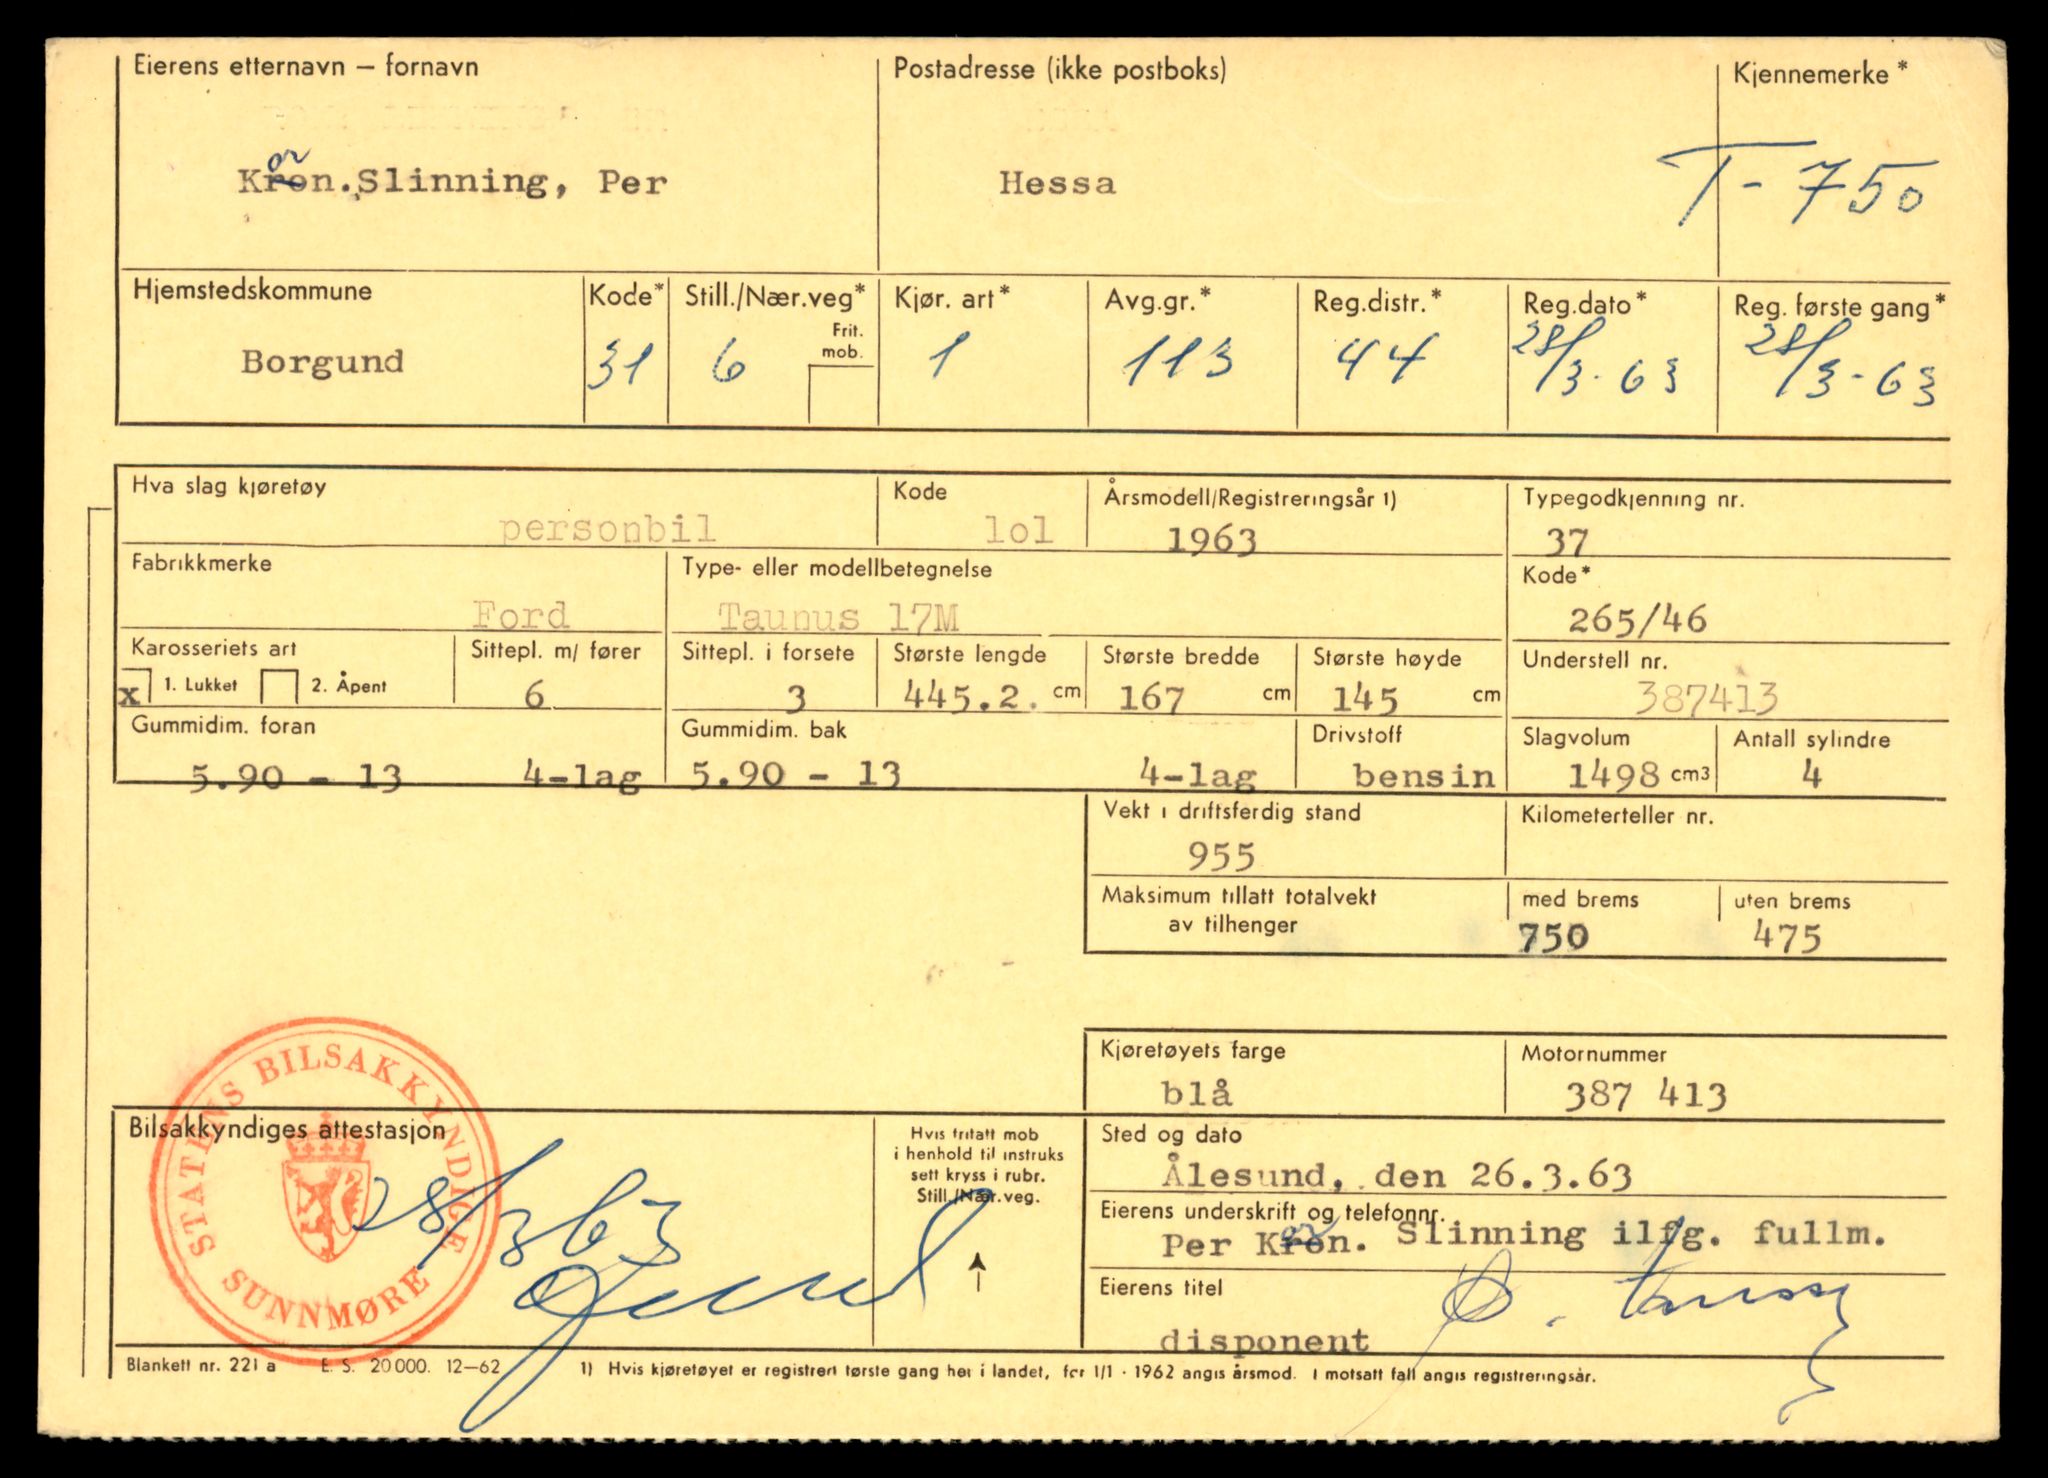 Eierens etternavn – fornavn Postadresse (ikke postboks) Kjennemerke*
or
Kron. Slinning, Per Hessa T-750
Hjemstedskommune Kode* Still./Nær.veg* Kjør. art* Avg.gr.* Reg.distr.* Reg.dato* Reg. første gang*
Frit. mob.
Borgund 31 6 1 113 44 28/3-63 28/3-63
Hva slag kjøretøy Kode Årsmodell/Registreringsår 1) Typegodkjenning nr.
personbil lol 1963 37
Fabrikkmerke Type- eller modellbetegnelse Kode*
Ford Taunus 17M 265/46
Karosseriets art Sittepl. m/ fører Sittepl. i forsete Største lengde Største bredde Største høyde Understell nr.
x 1. Lukket 2. Åpent 6 3 445.2. cm 167 cm 145 cm 387413
Gummidim. foran Gummidim. bak Drivstoff Slagvolum Antall sylindre
5.90 – 13 4-lag 5.90 – 13 4-lag bensin 1498 cm3 4
Vekt i driftsferdig stand Kilometerteller nr.
955
Maksimum tillatt totalvekt med brems uten brems
av tilhenger 750 475
Kjøretøyets farge Motornummer
blå 387 413
STATENS BILSAKKYNDIGE
SUNNMØRE
Bilsakkyndiges attestasjon
28/3 63
Hvis fritatt mob
i henhold til instruks
sett kryss i rubr.
Still./Nær.veg.
Sted og dato
Ålesund, den 26.3.63
Eierens underskrift og telefonnr.
or
Per Kron. Slinning ilfg. fullm.
Eierens titel
disponent
Blankett nr. 221 a E. S. 20 000. 12–62 1) Hvis kjøretøyet er registrert første gang her i landet, før 1/1 - 1962 angis årsmod. I motsatt fall angis registreringsår.